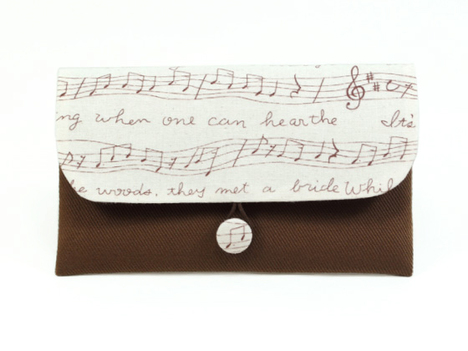 ng when one can hearthe It's
he woods, they met a bride Whil